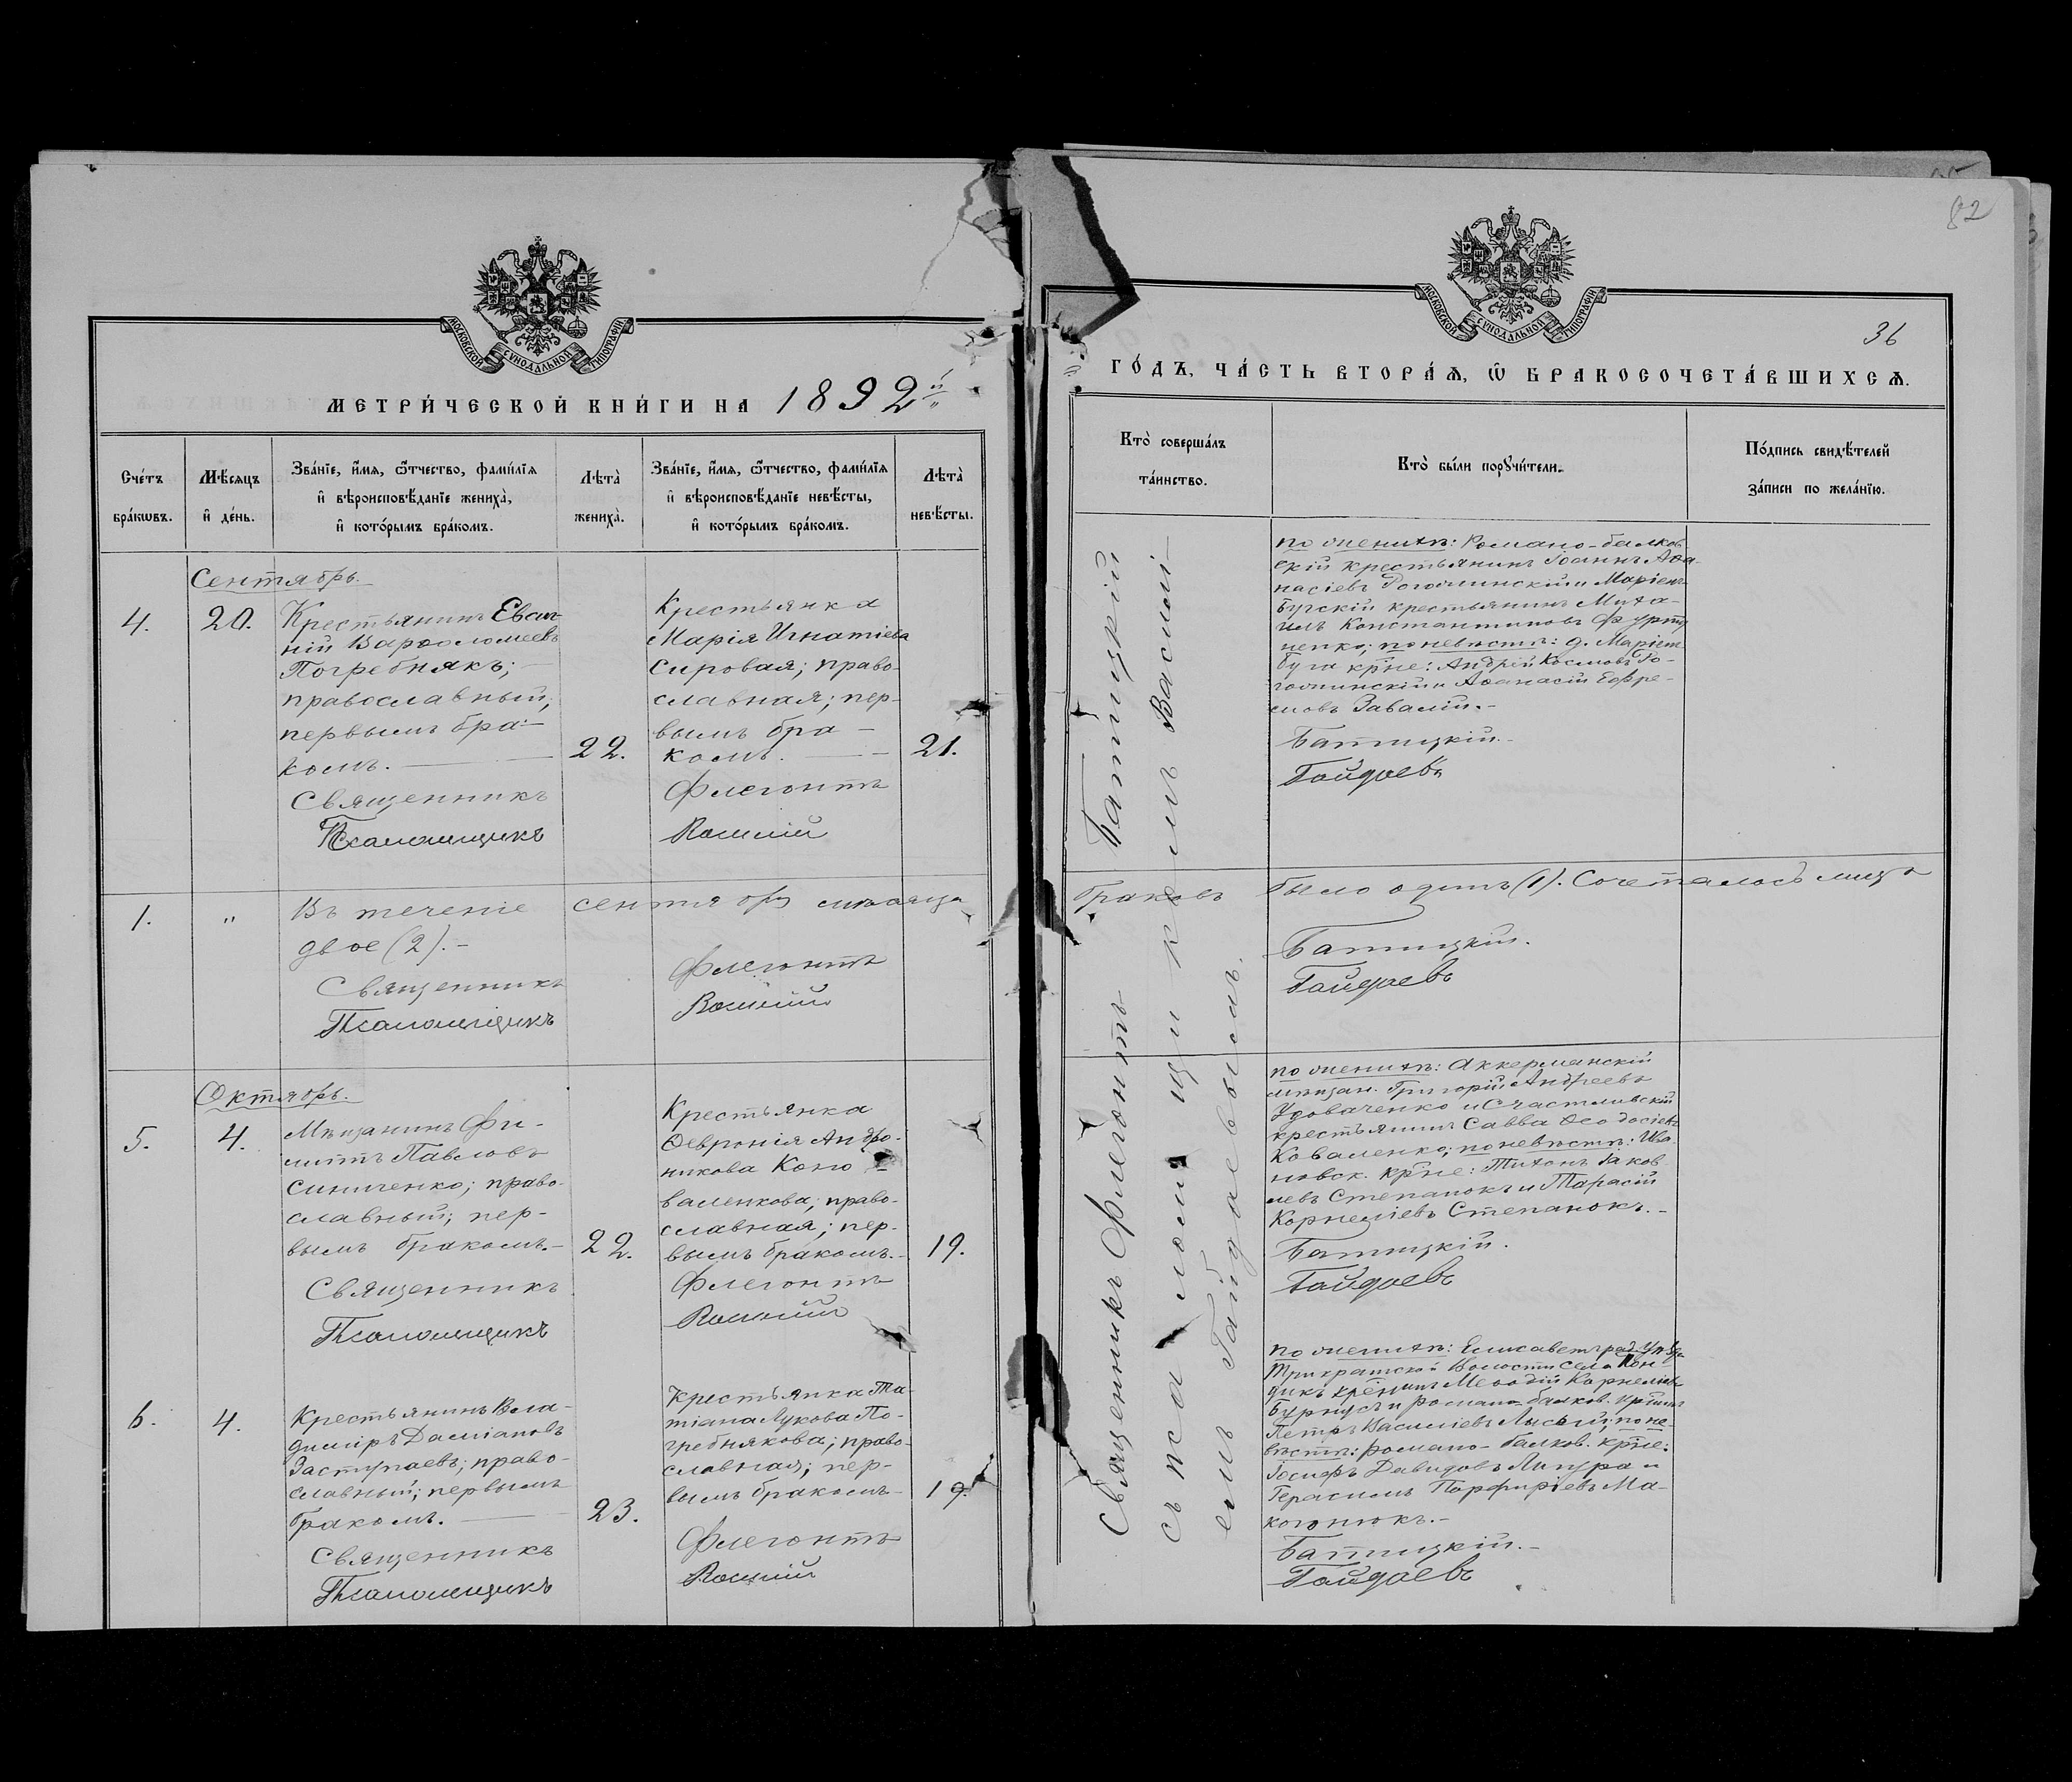 МОСКОВСКОЙ СѴНОДАЛЬНОЙ ТИПОГРАФІИ
МЕТРИ́ЧЕСКОЙ КНИ́ГИ НА 1892й
Сче́тъ бра́кѡвъ.
Мѣ́сяцъ и҆ де́нь.
Зва́нїе, и҆́мя, ѻ҆́тчество, фами́лїя
и҆ вѣроисповѣ́данїе жениха̀,
и҆ кото́рымъ бра́комъ.
Лѣта̀ жениха̀.
Зва́нїе, и҆́мя, ѻ҆́тчество, фами́лїя
и҆ вѣроисповѣ́данїе невѣ́сты,
и҆ кото́рымъ бра́комъ.
Лѣта̀ невѣ́сты.
Сентябрь.
4.
20.
Крестьянинъ Евге-
ній Варѳоломеевъ
Погребнякъ;
православный;
первымъ бра-
комъ.
22.
Священникъ
Псаломщикъ
Крестьянка
Марія Игнатіева
Сировая; право-
славная; пер-
вымъ бра-
комъ.
21.
Флегонтъ
Василій
1.
"
Въ теченіе сентября мѣсяца
двое (2).-
Священникъ Флегонтъ
Псаломщикъ Василій
Октябрь.
5.
4.
Мѣщанинъ Фи-
липпъ Павловъ
Синиченко; право-
славный; пер-
вымъ бракомъ.-
22.
Священникъ
Псаломщикъ
Крестьянка
Ѳевронія Андро-
никова Коно-
валенкова; право-
славная; пер-
вымъ бракомъ.-
19.
Флегонтъ
Василій
6.
4.
Крестьянинъ Вла-
диміръ Даміановъ
Заступаевъ; право-
славный; первымъ
бракомъ.
23.
Священникъ
Псаломщикъ
Крестьянка Та-
тіана Лукова По-
гребнякова; право-
славная; пер-
вымъ бракомъ-
19.
Флегонтъ
Василій
82
МОСКОВСКОЙ СѴНОДАЛЬНОЙ ТИПОГРАФІИ
36
ГО́ДЪ, ЧА́СТЬ ВТОРА́Ѧ, Ѡ҆ БРАКОСОЧЕТА́ВШИХСѦ.
Кто̀ соверша́лъ
та́инство.
Кто̀ бы́ли порꙋчи́тели.
По́дпись свидѣ́телей
за́писи по жела́нїю.
Священникъ Флегонтъ Батицкій
съ псаломщикомъ Василі-
емъ Гайдаевымъ.
по женихѣ: Романо-балков-
скій крестьянинъ Іоаннъ Аѳа-
насіевъ Рогочинскій и Маріен-
бугскій крестьянинъ Миха-
илъ Константиновъ
по невѣстѣ: д. Маріен-
буга кр-не: Андрей Космовъ Ро-
гочинскій и Аѳанасій Ефре-
мовъ Завалій.-
Батицкій.-
Гайдаевъ
браковъ было одинъ (1). Сочеталось лицъ
Батицкій.
Гайдаевъ
по женихѣ: Аккерманскій
мѣщан. Григорій Андреевъ
Удоваченко и Счастливскій
крестьянинъ Савва Ѳеодосіевъ
Коваленко; по невѣстѣ: Ива-
новск. кр-не: Тихонъ Іаков-
левъ Степанокъ и Тарасій
Корнеліевъ Степанокъ.-
Батицкій.
Гайдаевъ
по женихѣ: Елисаветград. уѣзда
Трикратской волости села Кон-
кр-нинъ Меѳодій Корнеліевъ
Бурнусъ и романо-балков. кр-нинъ
Петръ Василіевъ Лысый; по не-
вѣстѣ: романо-балков. кр-не:
Іосифъ Давидовъ Липура и
Герасимъ Порфиріевъ Ма-
когонюкъ.-
Батицкій.-
Гайдаевъ